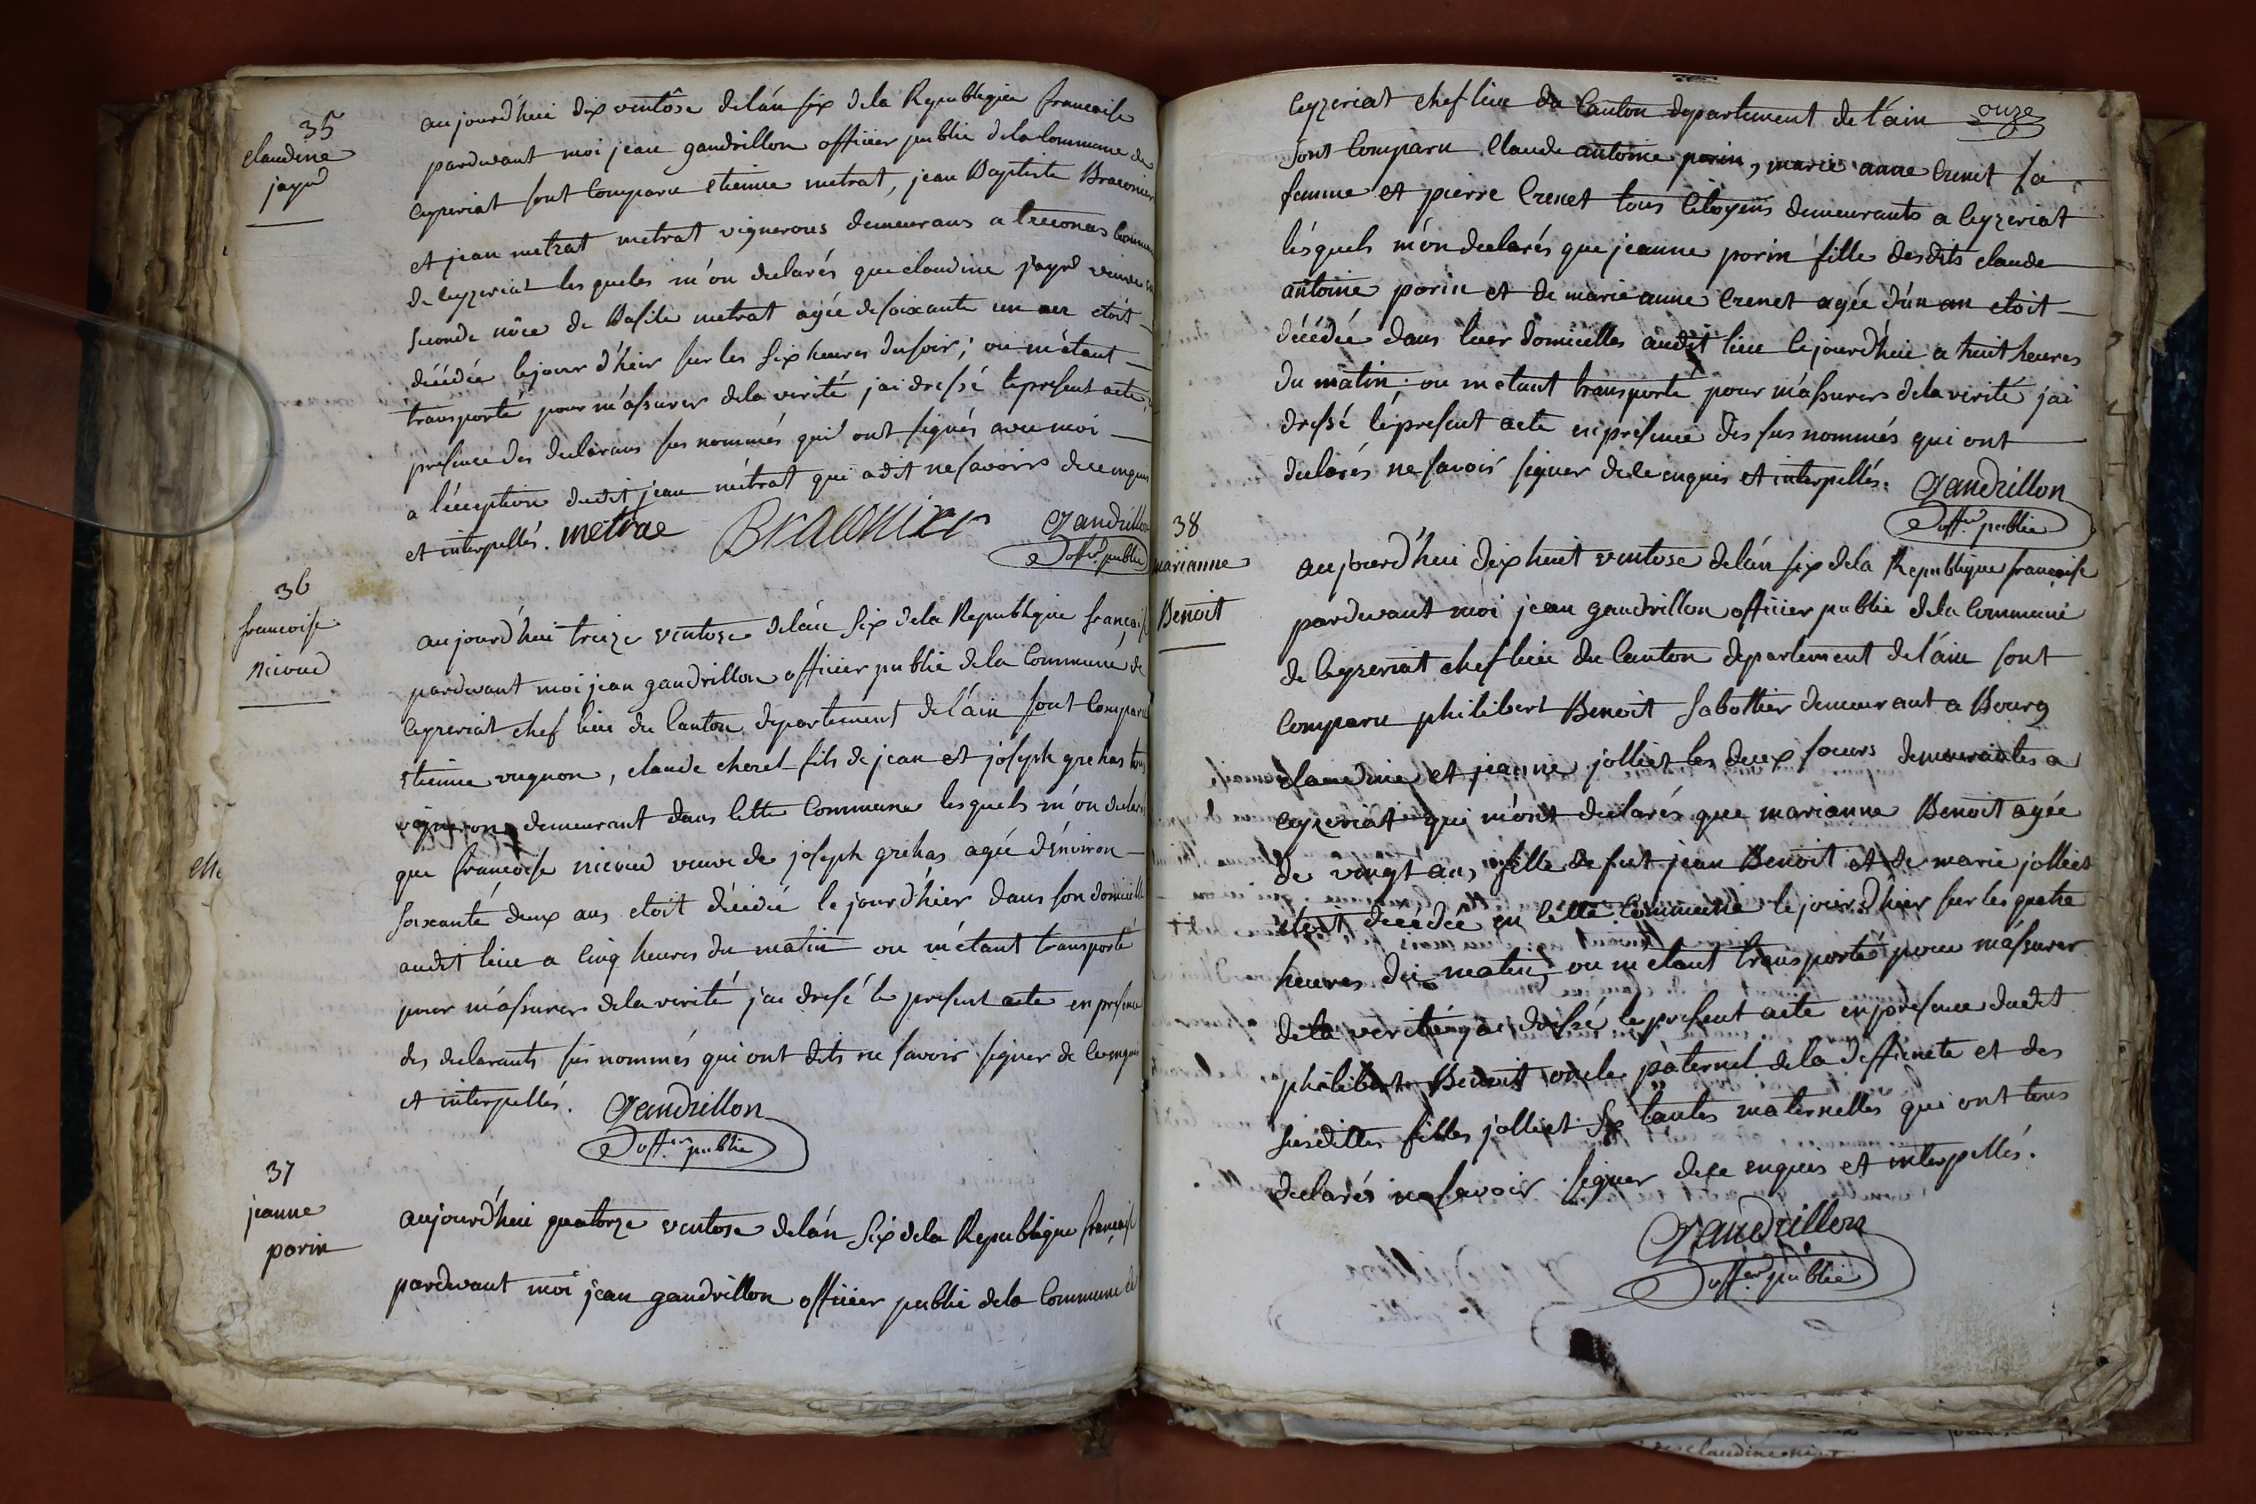 35
claudine
jayr
aujourd'hui dix ventôse de l'an six de la Republique francaise
pardevant moi jean gaudrillon officier public de la Commune de
Ceyzeriat sont Comparu etienne metrat, jean Baptiste Braconier
et jean metrat metrat vignerons demeurans a
de Ceyzeriat les quels m'on declarés que claudine jayr veuve en
seconde nôce de Basile metrat agée de soixante un an etoit
décédée le jour d'hier sur les six heures du soir; ou m'étant
transporté pour m'assurer de la verité j'ai dressé le present acte
presence des declarans sus nommés qui ont signés avec moi
a l'éception dudit jean métrat qui a dit ne savoir de ce enquis
et interpellés. metrae Braconier Gaudrillon
offer public
36
francoise
nicoud
aujourd'hui treize ventose de l'an six de la Republique français
pardevant moi jean gaudrillon officier public de la Commune de
Ceyzeriat chef lieu du Canton departement de l'ain sont Comparu
etienne vugnon, claude cherel fils de jean et joseph grehas tous
vigneron demeurant dans Cette Commune lesquels m'on declaré
que francoise nicoud veuve de joseph grehas agée d'énviron
soixante deux ans etoit décédée le jour d'hier dans son domicille
audit lieu a Cinq heures du matin ou m'étant transporté
pour m'assurer de la verité j'ai dressé le present acte en presence
des declarants sus nommés qui ont dits ne savoir signer de ce enquis
et interpellés. Gaudrillon
offer public
37
jeanne
porin
aujourd'hui quatorze ventose de l'an six de la Republique français
pardevant moi jean gaudrillon officier public de la Commune de
Ceyzeriat chef lieu du Canton departement de l'ain onze
sont Comparu Claude antoine porin, marie anne Crenet sa
femme et pierre Crenet tous Citoyens demeurants a Ceyzeriat
lésquels m'on declarés que jeanne porin fille desdits claude
antoine porin et de marie anne Crenet agée d'un an etoit
décédée dans leur domicilles audit lieu le jourd'hui a huit heures
du matin; ou m'etant transporté pour m'assurer de la verité j'ai
dressé le present acte en presence des sus nommés qui ont
declarés ne savoir signer de ce enquis et interpellés. Gaudrillon
offer public
38
marianne
Benoit
aujourd'hui dix huit ventose de l'an six de la Republique francaise
pardevant moi jean gaudrillon officier public de la Commune
de Ceyzeriat chef lieu du Canton departement de l'ain sont
Comparu philibert Benoit sabottier demeurant a Bourg
claudine et jeanne jolliet les deux sœurs demeurantes a
Ceyzeriat qui m'ont declarés que marianne Benoit agée
de vingt ans fille de fut jean Benoit et de marie jolliet
etoit décédée en Cette Commune le jour d'hier sur les quatre
heures du matin; ou m'etant transporté pour m'assurer
de la verité j'ai dressé le present acte en presence dudit
philibert Benoit oncle paternel de la deffunete et des
susdittes filles jolliet tantes maternelles qui ont tous
declarés ne savoir signer de ce enquis et interpellés.
Gaudrillon
offer public